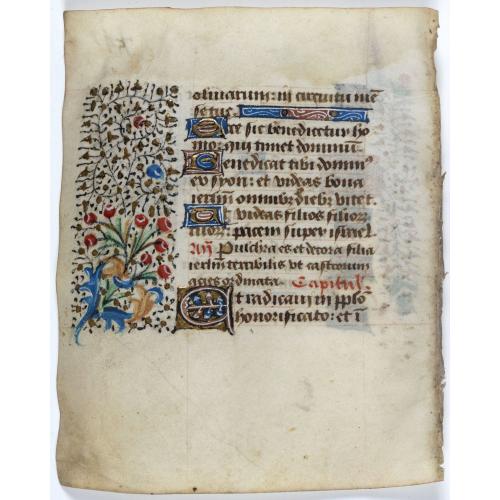 olivarum: in circuitu men
se tue
Ecce sic benedicetur ho
mo: qui timet dominum
Benedicat tibi dominus
ex syon: et videas bona
ierlm omnibus diebus vite t
Et videas filios filiorum
tuorum: pacem super israel
An Pulchra es et decora filia
ierlm terribilis ut castrorum
acies ordinata. Capitul
Et radicavi in pplo
honorificato: et i